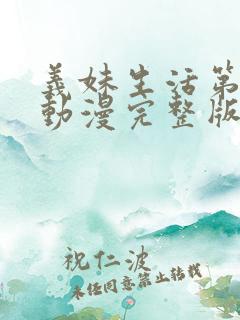 義妹生活第
動漫完整版
祝仁波
未经同意禁止转载